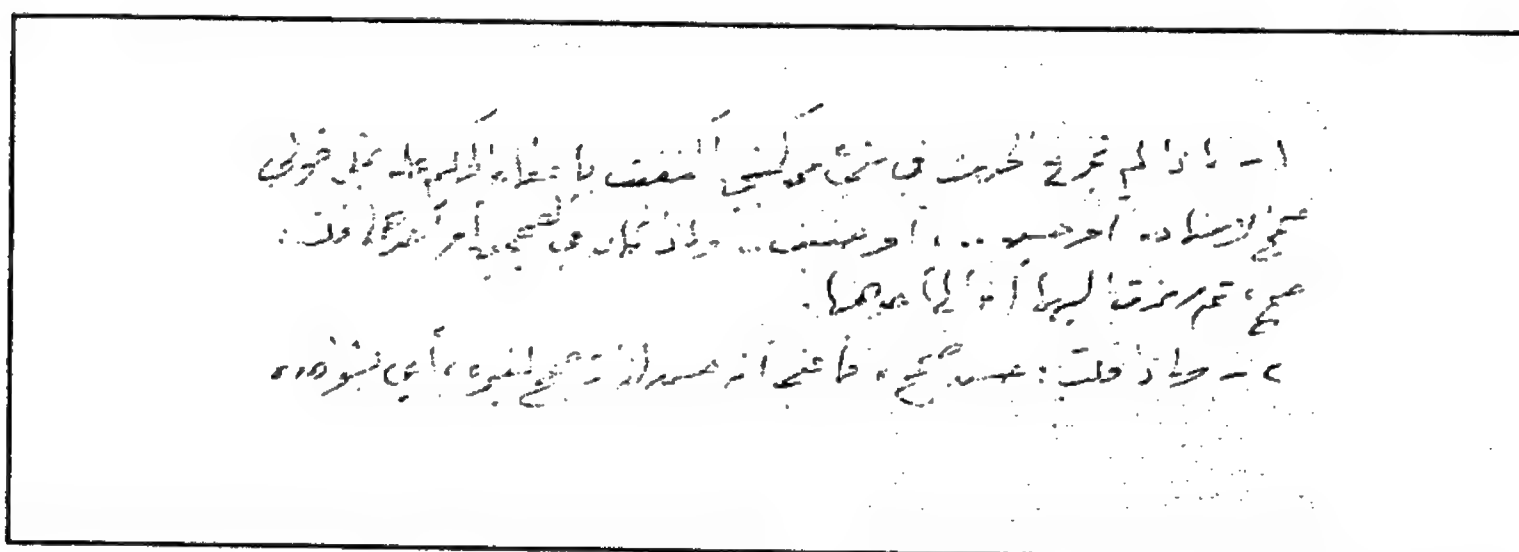 ١ - إذا لم تخرج الحديث في شيء من كتبي اكتفيت بإعطاء الحكم عليه بمثل قولي
صحيح الإسناد، أو حسن .. ، أو ضعيف .. وإذا كان في الصحيحين أو أحدهما قلت:
صحيح، ثم رمزت إليهما أو إلى أحدهما.
٢ - وإذا قلت: حسن صحيح، فأعني أنه حسن لذاته صحيح لغيره، أي بشواهده